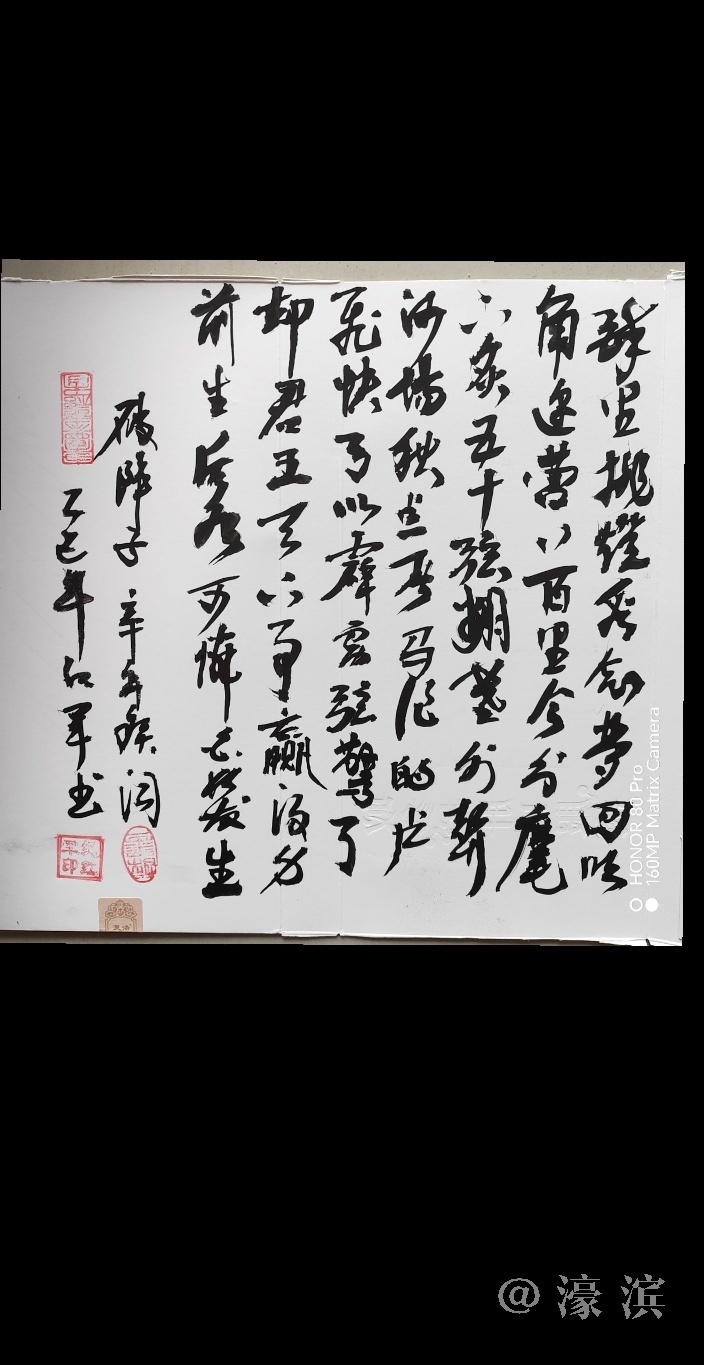 醉里挑灯看剑梦回吹
角连营八百里分麾
下炙五十弦翻塞外声
沙场秋点兵马作的卢
飞快弓似霹雳弦惊了
却君王天下事赢得身
前生后名可怜白发生
破阵子 辛弃疾词
乙巳年红军书
HONOR 80 Pro
160MP Matrix Camera
@濠滨